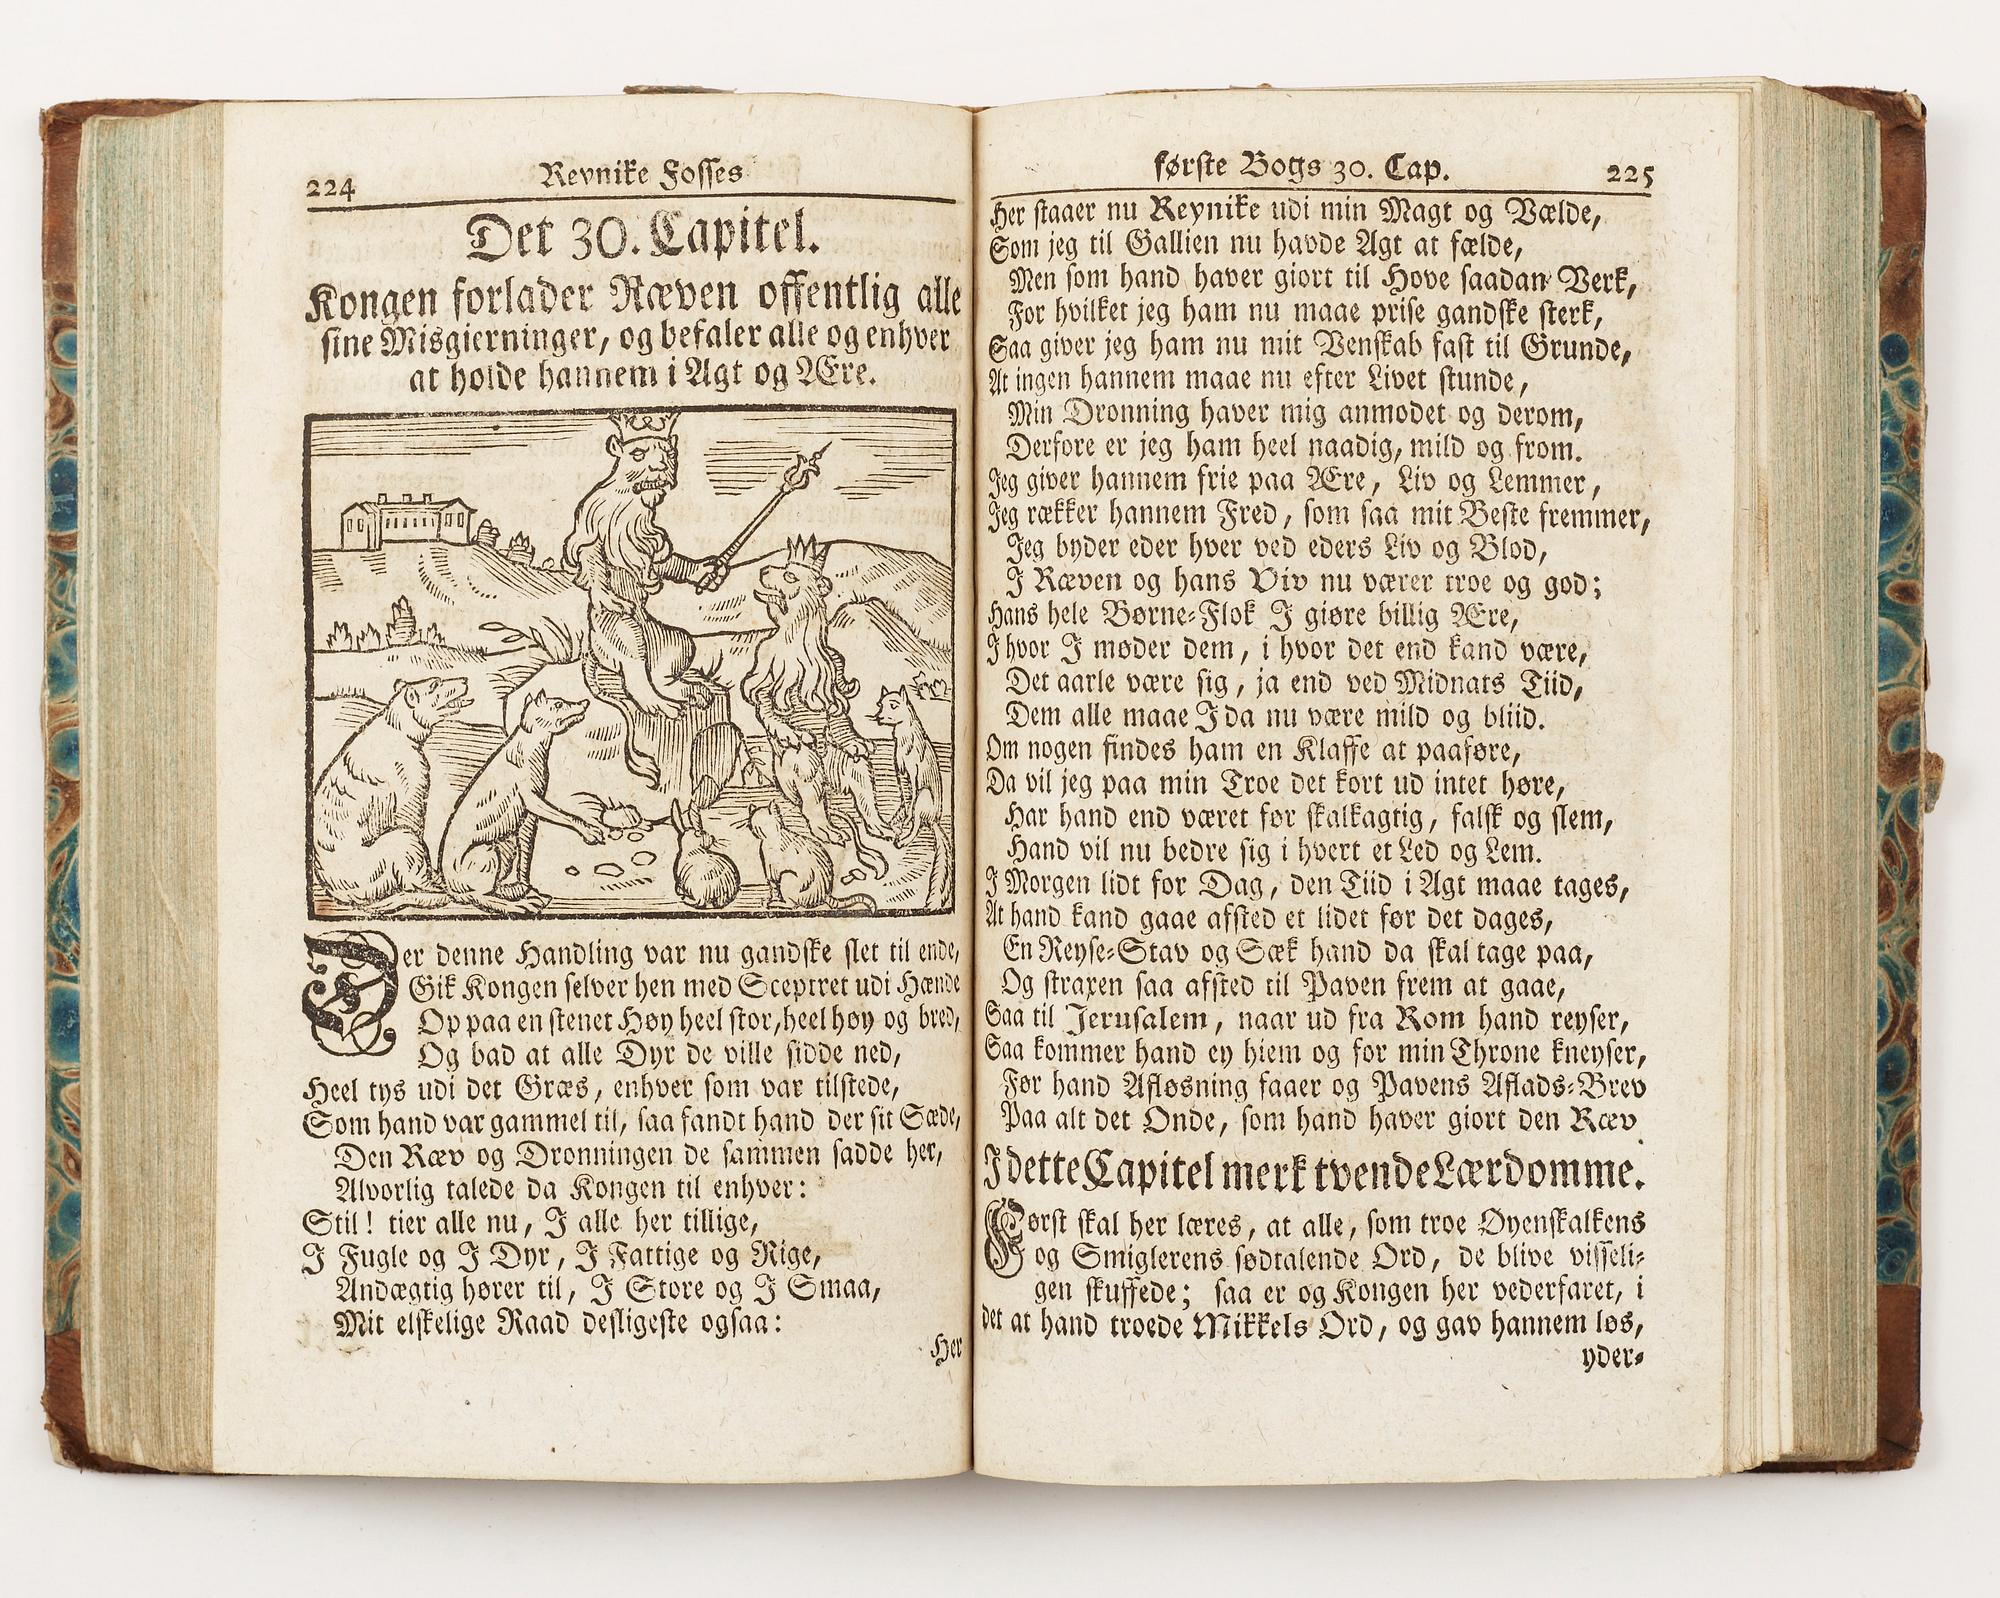 224
Reynike Fosses
Det 30. Capitel.
Kongen forlader Ræven offentlig alle
sine Misgierninger, og befaler alle og enhver
at holde hannem i Agt og Ære.
Der denne Handling var nu gandske slet til ende,
Gik Kongen selver hen med Sceptret udi Hænde
Op paa en stenet Høy heel stor, heel høy og bred,
Og bad at alle Dyr de ville sidde ned,
Heel tys udi det Græs, enhver som var tilstede,
Som hand var gammel til, saa fandt hand der sit Sæde,
Den Ræv og Dronningen de sammen sadde her,
Alvorlig talede da Kongen til enhver:
Stil! tier alle nu, I alle her tillige,
I Fugle og I Dyr, I Fattige og Rige,
Andægtig hører til, I Store og I Smaa,
Mit elskelige Raad desligeste ogsaa:
Her
første Bogs 30. Cap.
225
Her staaer nu Reynike udi min Magt og Vælde,
Som jeg til Gallien nu havde Agt at fælde,
Men som hand haver giort til Hove saadan Verk,
For hvilket jeg ham nu maae prise gandske sterk,
Saa giver jeg ham nu mit Venskab fast til Grunde,
At ingen hannem maae nu efter Livet stunde,
Min Dronning haver mig anmodet og derom,
Derfore er jeg ham heel naadig, mild og from.
Jeg giver hannem frie paa Ære, Liv og Lemmer,
Jeg rækker hannem Fred, som saa mit Beste fremmer,
Jeg byder eder hver ved eders Liv og Blod,
I Ræven og hans Viv nu værer troe og god;
Hans hele Børne-Flok I giøre billig Ære,
I hvor I møder dem, i hvor det end kand være,
Det aarle være sig, ja end ved Midnats Tiid,
Dem alle maae I da nu være mild og bliid.
Om nogen findes ham en Klaffe at paaføre,
Da vil jeg paa min Troe det kort ud intet høre,
Har hand end været før skalkagtig, falsk og slem,
Hand vil nu bedre sig i hvert et Led og Lem.
I Morgen lidt for Dag, den Tiid i Agt maae tages,
At hand kand gaae afsted et lidet før det dages,
En Reyse-Stav og Sæk hand da skal tage paa,
Og straxen saa afsted til Paven frem at gaae,
Saa til Jerusalem, naar ud fra Rom hand reyser,
Saa kommer hand ey hiem og for min Throne kneyser,
Før hand Afløsning faaer og Pavens Aflads-Brev
Paa alt det Onde, som hand haver giort den Ræv
I dette Capitel merk tvende Lærdomme.
Først skal her læres, at alle, som troe Øyenskalkens
og Smiglerens sødtalende Ord, de blive visseli-
gen skuffede; saa er og Kongen her vederfaret, i
det at hand troede Mikkels Ord, og gav hannem løs,
yder-